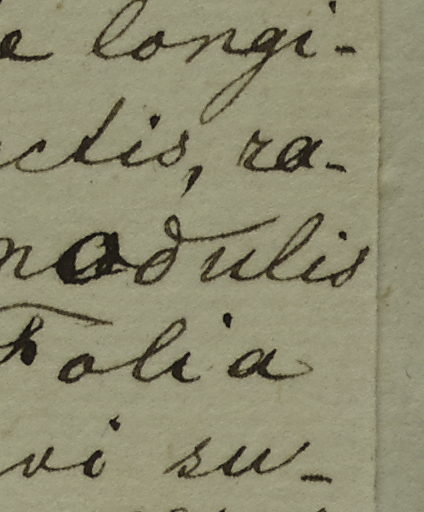 e longi-
ctis, ra-
nodulis
Folia
vi su-